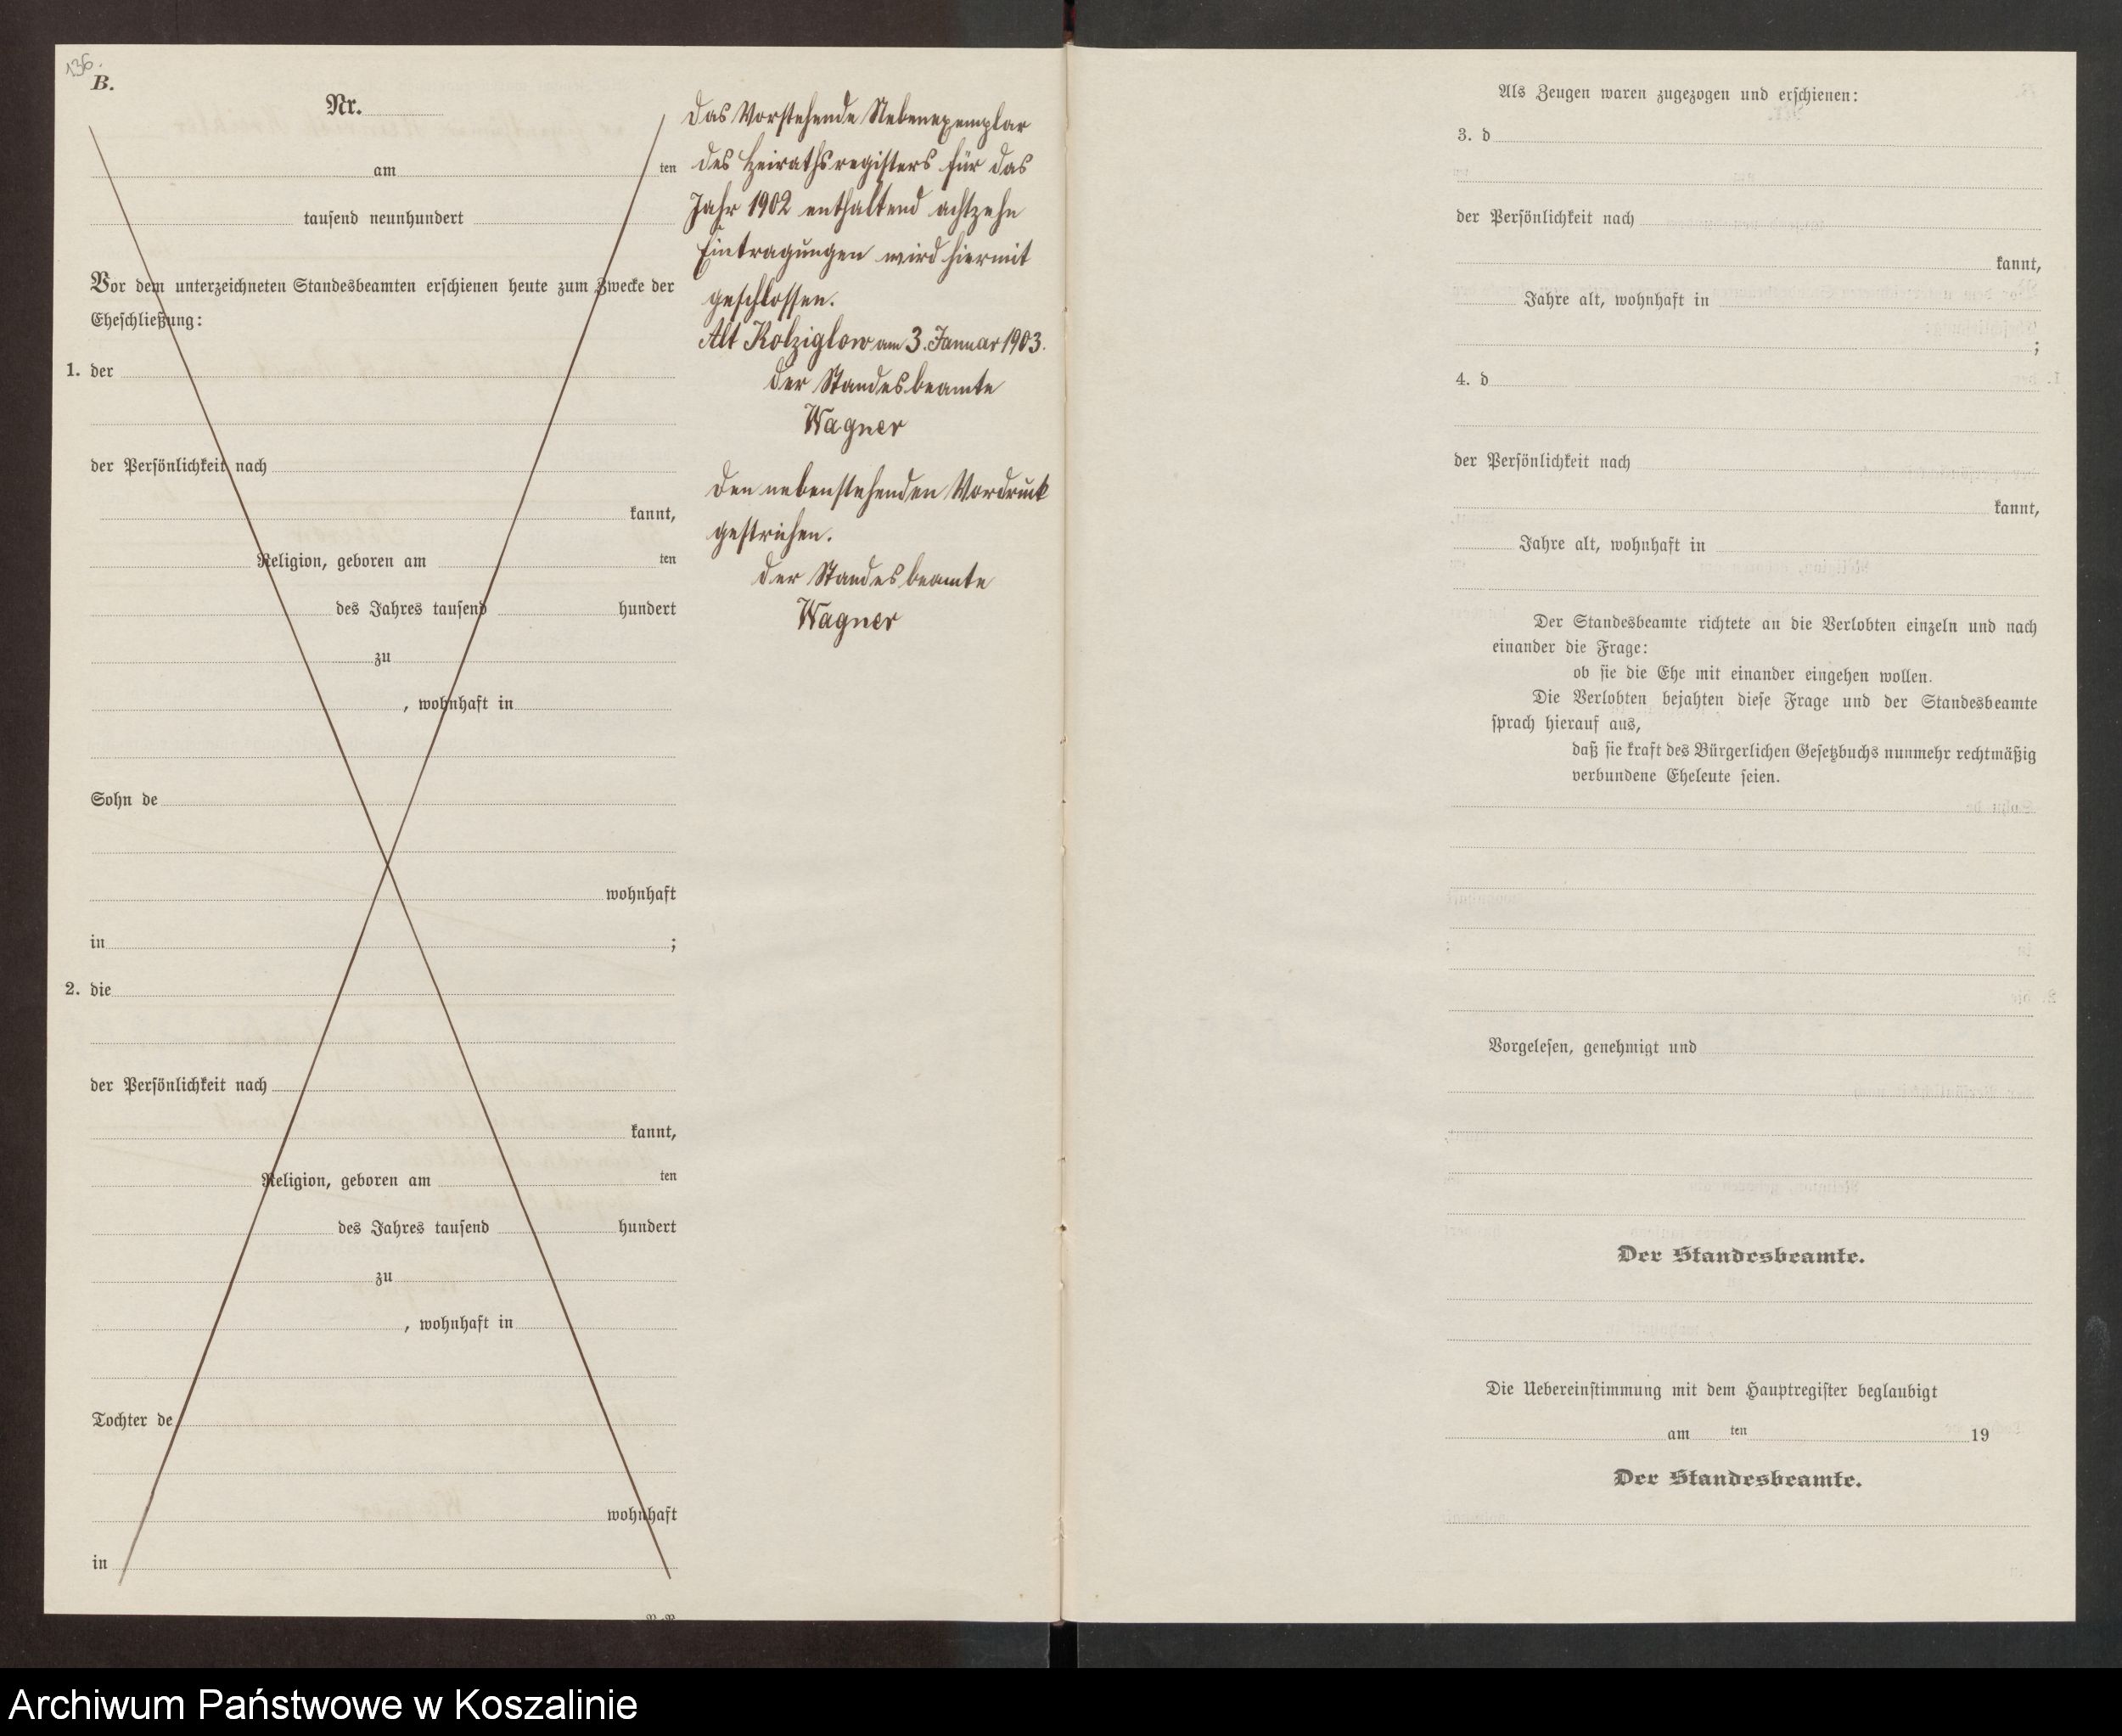 136.
B.
Nr.
am ten
tausend neunhundert
Vor dem unterzeichneten Standesbeamten erschienen heute zum Zwecke der
Eheschließung:
1. der
der Persönlichkeit nach
kannt,
Religion, geboren am ten
des Jahres tausend hundert
zu
, wohnhaft in
Sohn de
wohnhaft
in ;
2. die
der Persönlichkeit nach
kannt,
Religion, geboren am ten
des Jahres tausend hundert
zu
, wohnhaft in
Tochter de
wohnhaft
in
Das Vorstehende Nebenexemplar
des Heirathsregisters für das
Jahr 1902 enthaltend achtzehn
Eintragungen wird hiermit
geschlossen.
Alt Kolziglow am 3. Januar 1903.
Der Standesbeamte
Wagner
Den nebenstehenden Vordruck
gestrichen.
Der Standesbeamte
Wagner
Als Zeugen waren zugezogen und erschienen:
3. d
der Persönlichkeit nach
kannt,
Jahre alt, wohnhaft in
;
4. d
der Persönlichkeit nach
kannt,
Jahre alt, wohnhaft in
Der Standesbeamte richtete an die Verlobten einzeln und nach
einander die Frage:
ob sie die Ehe mit einander eingehen wollen.
Die Verlobten bejahten diese Frage und der Standesbeamte
sprach hierauf aus,
daß sie kraft des Bürgerlichen Gesetzbuchs nunmehr rechtmäßig
verbundene Eheleute seien.
Vorgelesen, genehmigt und
Der Standesbeamte.
Die Uebereinstimmung mit dem Hauptregister beglaubigt
am ten 19
Der Standesbeamte.
Archiwum Państwowe w Koszalinie